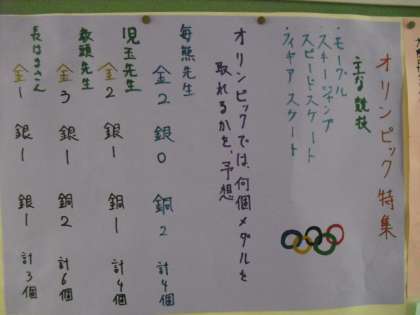 オリンピック特集
主な競技
・モーグル
・スキージャンプ
・スピードスケート
・フィギアスケート
オリンピックでは、何個メダルを
取れるかを、予想
毎熊先生
金2 銀0 銅2 計4個
児玉先生
金2 銀1 銅1 計4個
教頭先生
金3 銀1 銅2 計6個
長はまさん
金1 銀1 銀1 計3個